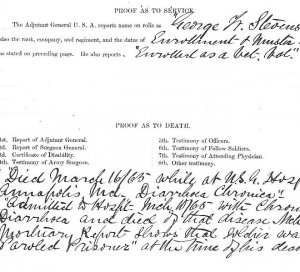 PROOF AS TO SERVICE.
The Adjutant General U. S. A. reports name on rolls as George W. Stevens
also the rank, company, and regiment, and the dates of Enrollment & Muster
as stated on preceding page. He also reports, "Enrolled as a Vet. Vol."
PROOF AS TO DEATH.
1st. Report of Adjutant General.
2d. Report of Surgeon General.
3d. Certificate of Disability.
4th. Testimony of Army Surgeon.
5th. Testimony of Officers.
6th. Testimony of Fellow Soldiers.
7th. Testimony of Attending Physician.
8th. Other testimony.
"Died March 16/65 while at U.S.G. Hosp
Annapolis, Md. Diarrhoea Chronica"
"admitted to Hospt. Mch 10/65 with Chron
Diarrhoea and died of that disease Mch
Mortuary Report shows that soldier was
"Paroled Prisoner" at the time of his dea